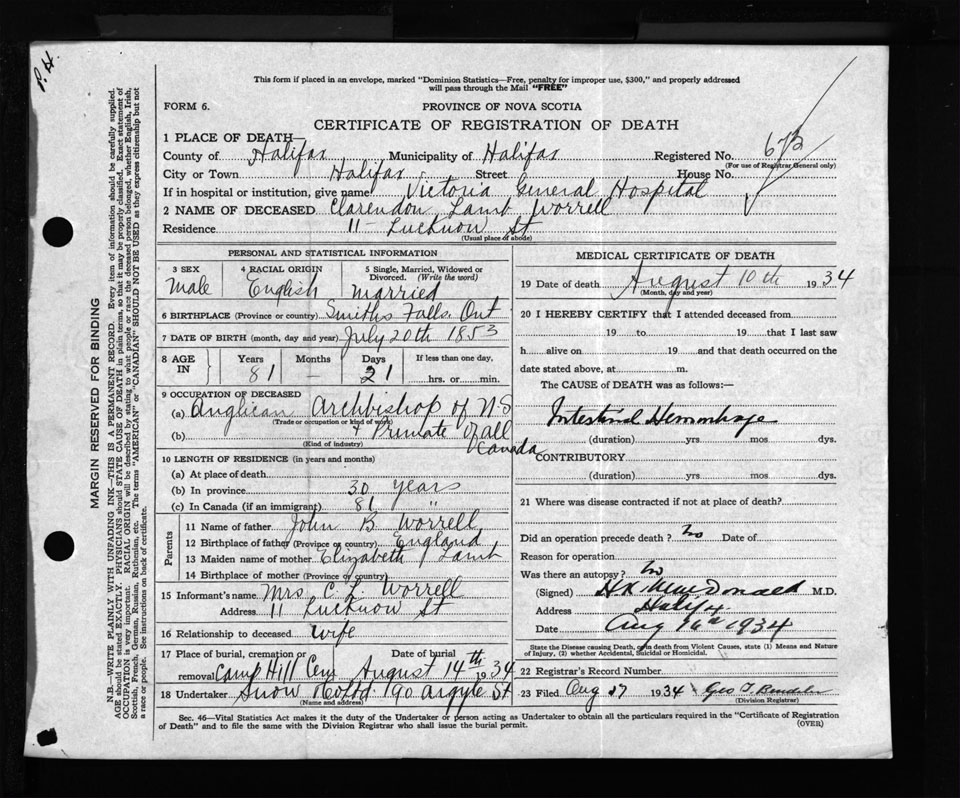 P. H.
This form if placed in an envelope, marked "Dominion Statistics—Free, penalty for improper use, $300," and properly addressed
will pass through the Mail "FREE"
FORM 6.
PROVINCE OF NOVA SCOTIA
CERTIFICATE OF REGISTRATION OF DEATH
1 PLACE OF DEATH—
County of Halifax Municipality of Halifax Registered No. 673
(For use of Registrar General only)
City or Town Halifax Street House No.
If in hospital or institution, give name Victoria General Hospital
2 NAME OF DECEASED Clarendon Lamb Worrell
Residence 11 - Lucknow St
(Usual place of abode)
PERSONAL AND STATISTICAL INFORMATION
3 SEX 4 RACIAL ORIGIN 5 Single, Married, Widowed or
Divorced. (Write the word)
Male English Married
6 BIRTHPLACE (Province or country) Smiths Falls. Ont
7 DATE OF BIRTH (month, day and year) July 20th 1853
8 AGE IN Years Months Days If less than one day,
81 — 21 hrs. or min.
9 OCCUPATION OF DECEASED
(a) Anglican Archbishop of N-S
(Trade or occupation or kind of work)
(b) + Primate of all Canada
(Kind of industry)
10 LENGTH OF RESIDENCE (in years and months)
(a) At place of death
(b) In province 30 years
(c) In Canada (if an immigrant) 81 "
Parents
11 Name of father John B. Worrell
12 Birthplace of father (Province or country) England
13 Maiden name of mother Elizabeth Lamb
14 Birthplace of mother (Province or country)
15 Informant's name Mrs C. L. Worrell
Address 11 Lucknow St
16 Relationship to deceased Wife
17 Place of burial, cremation or removal Date of burial
Camp Hill Cem August 14th 1934
18 Undertaker Snow & Co Ltd. 190 Argyle St
(Name and address)
MEDICAL CERTIFICATE OF DEATH
19 Date of death August 10th 1934
(Month, day and year)
20 I HEREBY CERTIFY that I attended deceased from
19 to 19 that I last saw
h alive on 19 and that death occurred on the
date stated above, at m.
The CAUSE of DEATH was as follows:—
Intestinal Hemorrhage
(duration) yrs mos dys.
CONTRIBUTORY
(duration) yrs. mos. dys.
21 Where was disease contracted if not at place of death?
Did an operation precede death? No Date of
Reason for operation
Was there an autopsy? No
(Signed) H K MacDonald M.D.
Address Halifx.
Date Aug 16th 1934
State the Disease causing Death, or in death from Violent Causes, state (1) Means and Nature
of Injury, (2) whether Accidental, Suicidal or Homicidal.
22 Registrar's Record Number
23 Filed Aug 27 1934 Geo T
(Division Registrar)
Sec. 46—Vital Statistics Act makes it the duty of the Undertaker or person acting as Undertaker to obtain all the particulars required in the "Certificate of Registration
of Death" and to file the same with the Division Registrar who shall issue the burial permit.
(OVER)
MARGIN RESERVED FOR BINDING
N.B.—WRITE PLAINLY WITH UNFADING INK—THIS IS A PERMANENT RECORD. Every item of information should be carefully supplied.
AGE should be stated EXACTLY. PHYSICIANS should STATE CAUSE OF DEATH in plain terms, so that it may be properly classified. Exact statement of
OCCUPATION is very important. RACIAL ORIGIN will be described by stating to what people or race the deceased person belonged, whether English, Irish,
Scottish, French, German, Russian, Ruthenian, etc. The terms "AMERICAN" or "CANADIAN" SHOULD NOT BE USED as they express citizenship but not
a race or people. See instructions on back of certificate.